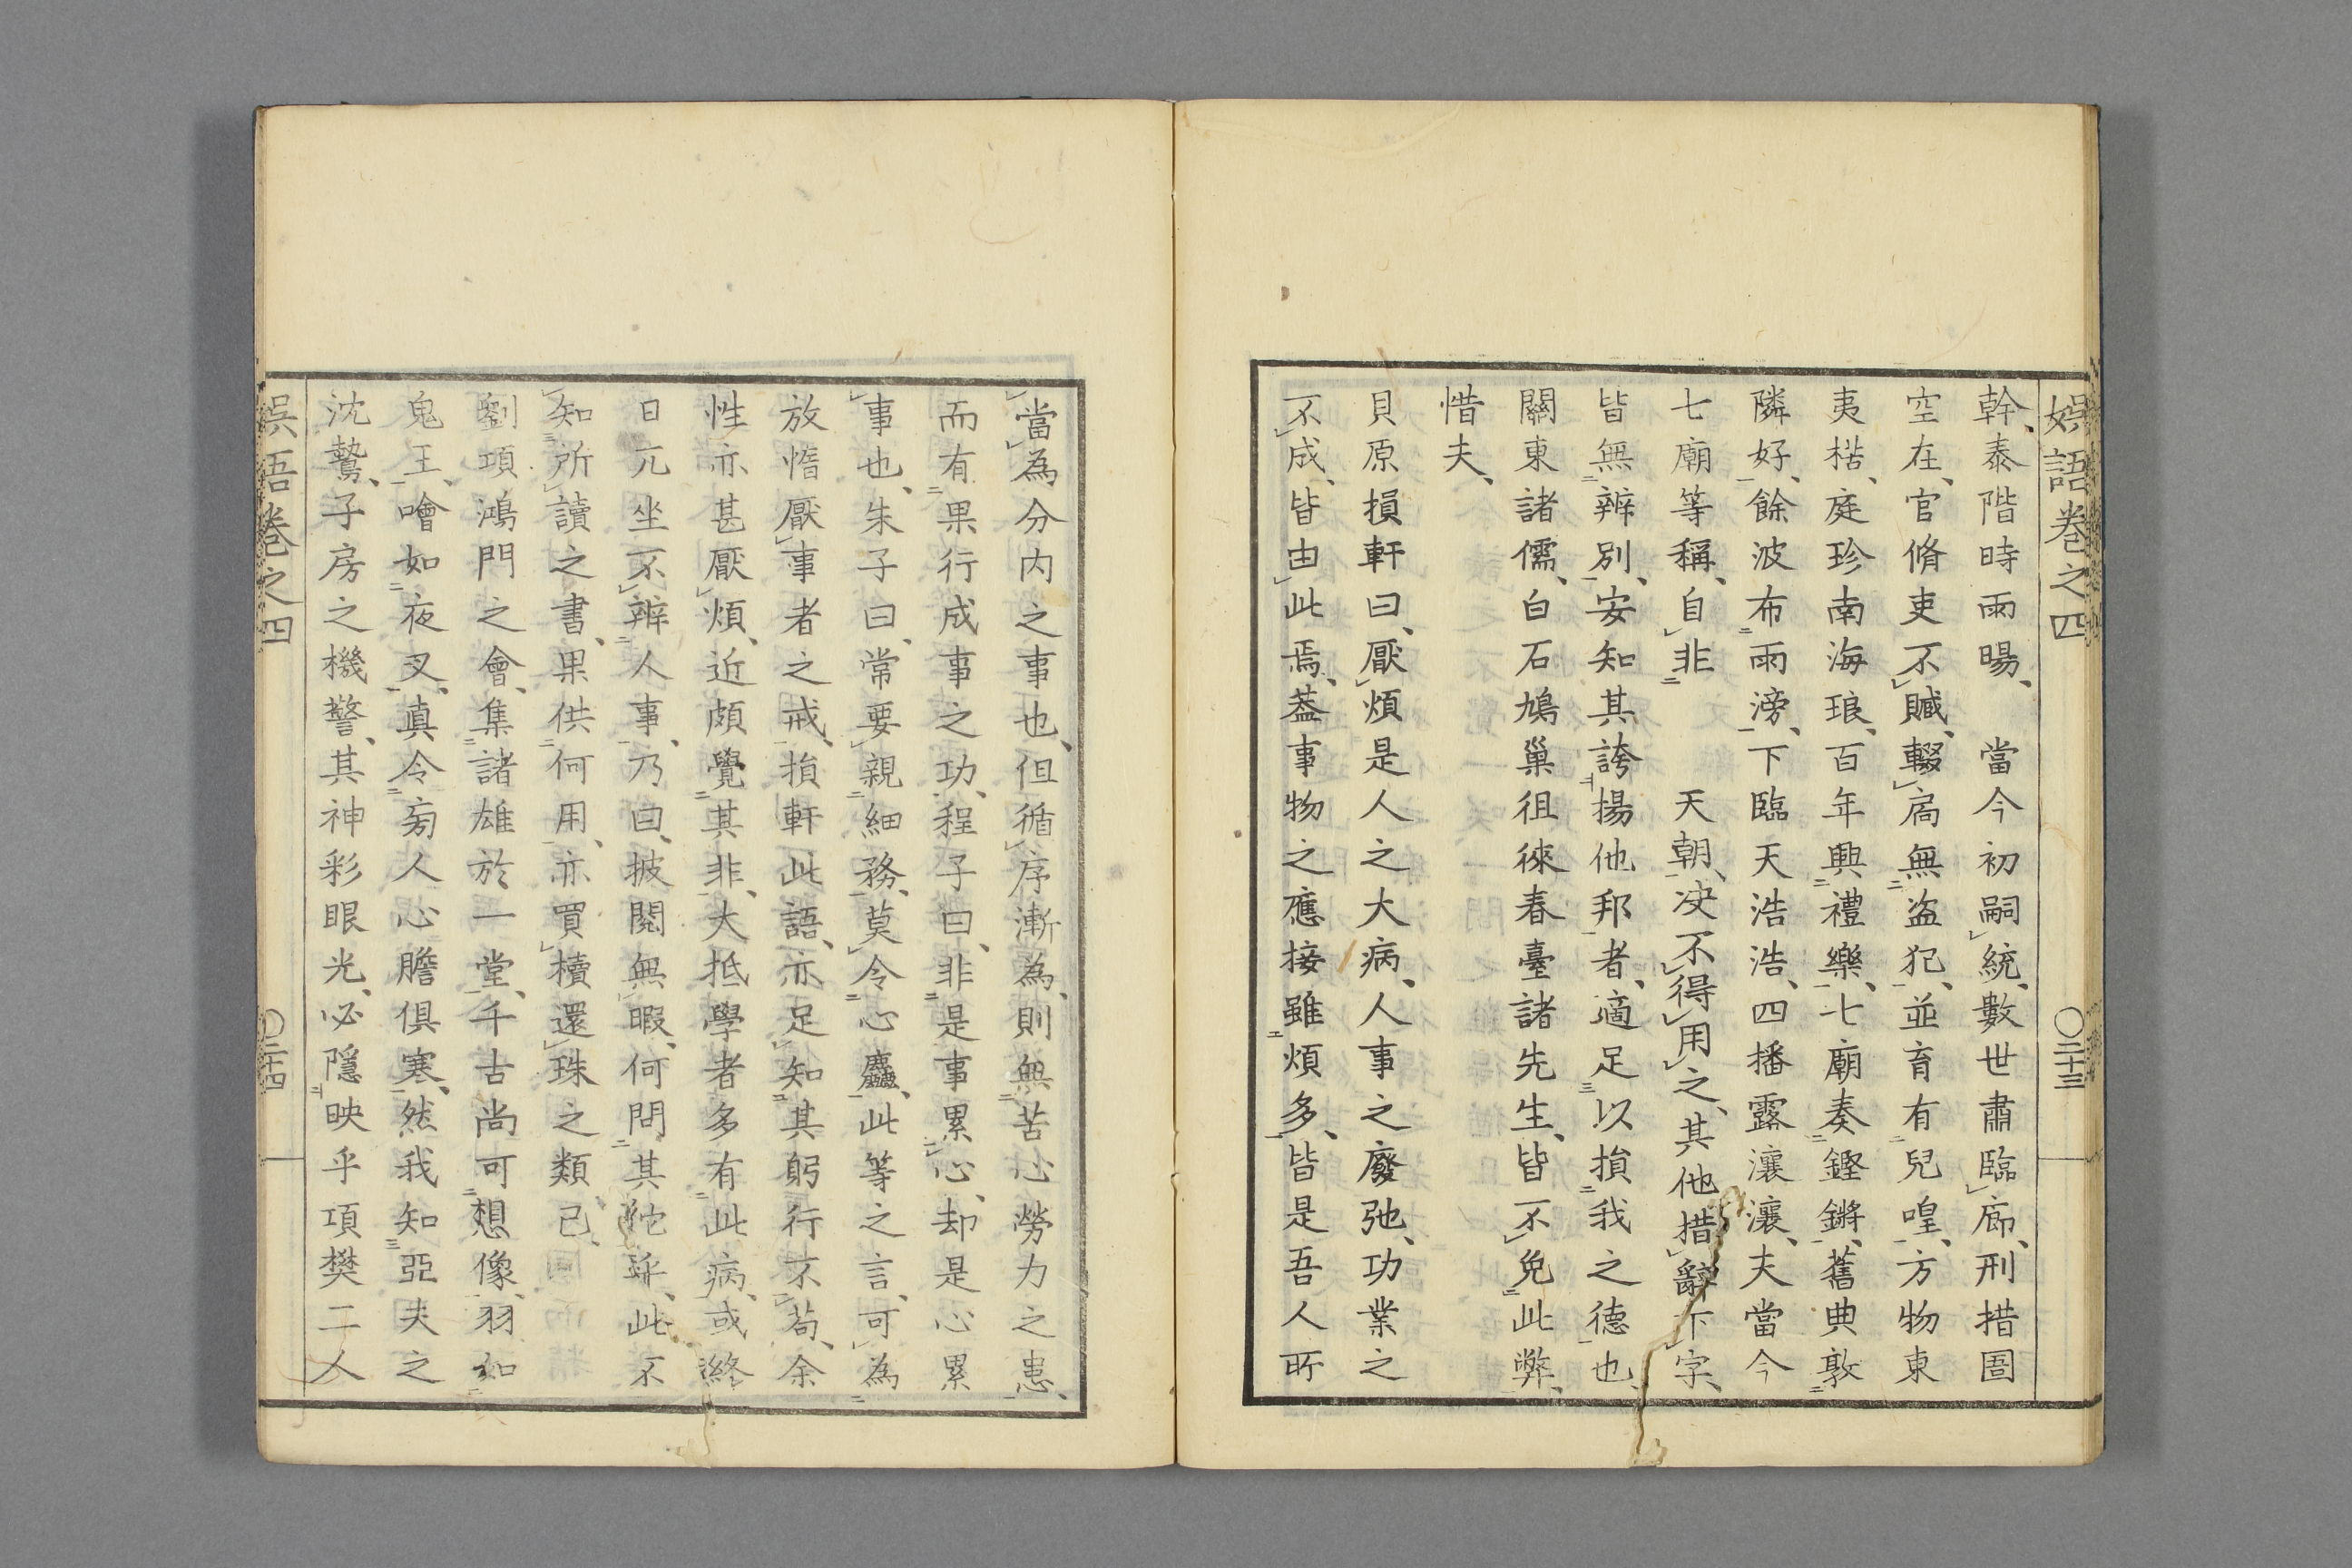 娯語卷之四
〇二十三
幹、泰階時雨暘、 當今初嗣統、數世肅臨廊、刑措圄
空在、官脩吏不贓、輟扃無盗犯、並育有兒喤、方物東
夷楛、庭珍南海琅、百年興禮樂、七廟奏鏗鏘、舊典敦
隣好、餘波布雨滂、下臨天浩浩、四播露瀼瀼、夫當今
七廟等稱、自非 天朝、决不得用之、其他措辭下字、
皆無辨別、安知其誇揚他邦者、適足以損我之德也、
關東諸儒、白石鳩巢徂徠春臺諸先生、皆不免此弊、
惜夫、
貝原損軒曰、厭煩是人之大病、人事之廢弛、功業之
不成、皆由此焉、葢事物之應接雖煩多、皆是吾人所
當為分内之事也、但循序漸為、則無苦心勞力之患、
而有果行成事之功、程子曰、非是事累心、却是心累
事也、朱子曰、常要親細務、莫令心麤、此等之言、可為
放惰厭事者之戒、損軒此語、亦足知其躬行不苟、余
性亦甚厭煩、近頗覺其非、大抵學者多有此病、或終
日兀坐不辨人事、乃曰、披閱無暇、何問其他耶、此不
知所讀之書、果供何用、亦買櫝還珠之類已、
劉項鴻門之會、集諸雄於一堂、千古尚可想像、羽如
鬼王、噲如夜叉、真令旁人心膽俱寒、然我知亞夫之
沈鷙、子房之機警、其神彩眼光、必隱映乎項樊二人
娯語卷之四
〇二十四